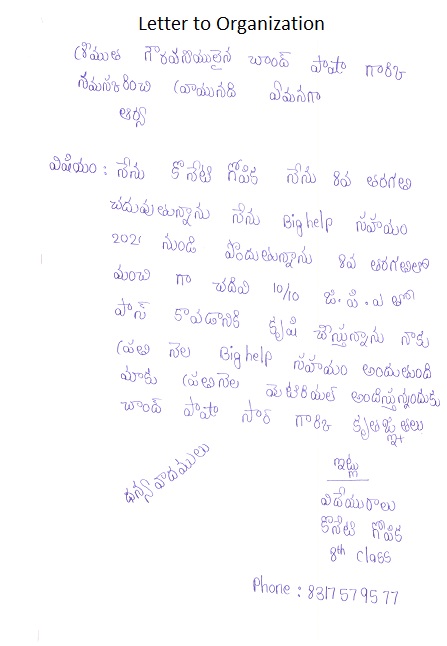 Letter to Organization
శ్రీయుత గౌరవనీయులైన చాంద్ పాషా గారికి
నమస్కరించి వ్రాయునది ఏమనగా
ఆర్య
విషయం : నేను కొనేటి గోపిక నేను 8వ తరగతి
చదువుతున్నాను నేను Big help సహాయం
2021 నుండి పొందుతున్నాను 8వ తరగతిలో
మంచి గా చదివి 10/10 జి. పి. ఎ తో
పాస్ కావడానికి కృషి చేస్తున్నాను నాకు
ప్రతి నెల Big help సహాయం అందుతుంది
మాకు ప్రతినెల మెటిరియల్ అందిస్తున్నందుకు
చాంద్ పాషా సార్ గారికి కృతజ్ఞతలు
ధన్యవాదములు
ఇట్లు
విధేయురాలు
కొనేటి గోపిక
8th class
Phone : 8317579577